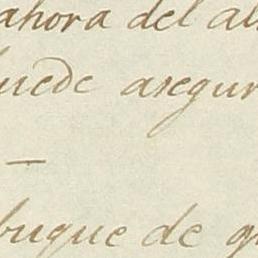 ahora del al
uede asegur
—
buque de g